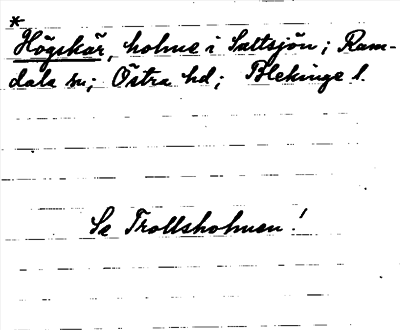 *
Högskär, holme i Saltsjön; Ram-
dala sn; Östra hd; Blekinge l.
Se Trollsholmen!